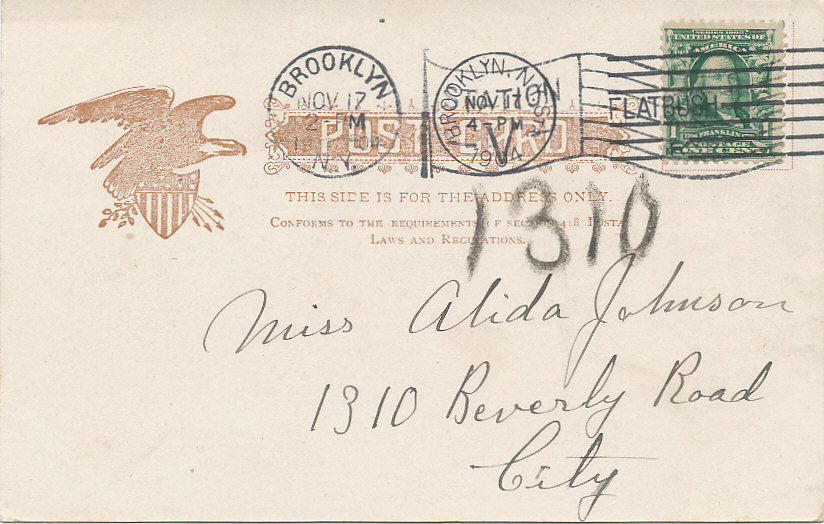 BROOKLYN
NOV 17
2 - PM
N.Y.
STATION
V
BROOKLYN, N.Y.
NOV 17
4 - PM
1904
FLATBUSH
SERIES 1902
UNITED STATES OF
AMERICA
FRANKLIN
ONE CENT
POSTAL CARD
THIS SIDE IS FOR THE ADDRESS ONLY.
CONFORMS TO THE REQUIREMENTS OF SECTION 418 POSTAL
LAWS AND REGULATIONS.
1310
Miss Alida Johnson
1310 Beverly Road
City